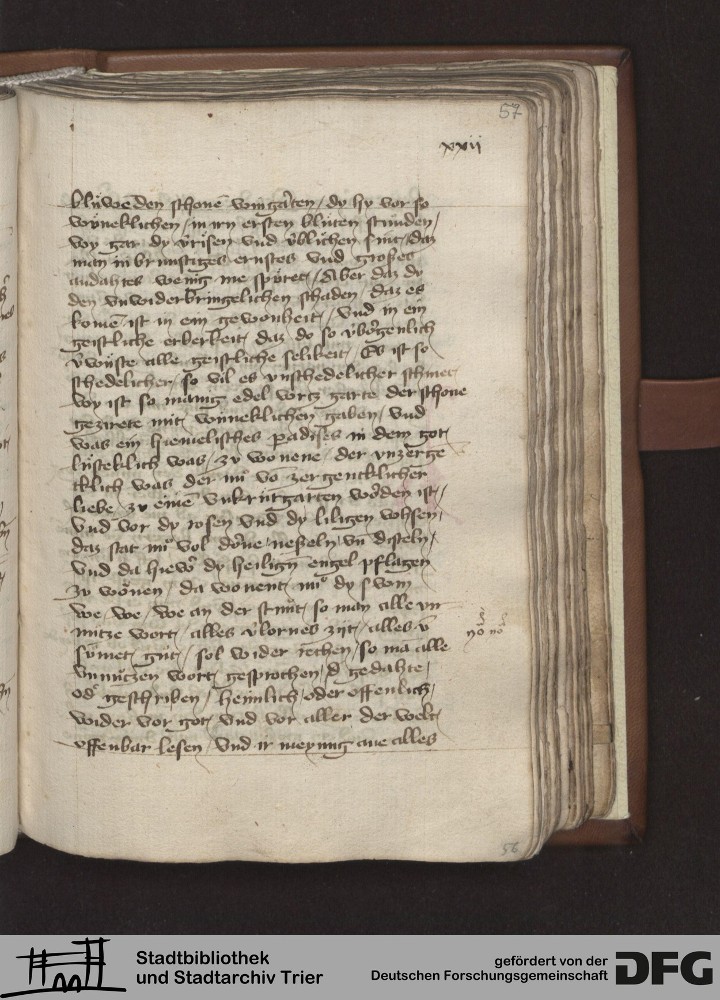 57
xxii
blüwenden schonē wingartē / dy hy vor so
wūneklichen / in irn ersten blüten stunden /
wy gar dy v̄risen vnd v̄blichen sint / daz
man inbrunstiges ernstes vnd großes
andahtes wenig me spüret / Aber daz dy
den vnwiderbringelichen schaden / daz es
komē ist in ein gewonheit / vnd in ein
geistliche erberkeit / daz do so v̄borgenlich
v̄wüste alle geistliche selikeit / Es ist so
schedelicher / so vil es vnschedelicher schinet
wy ist so manig edel wrtz garte der schone
gezirete mit wūneklichen gaben / vnd
was ein hiemelisches padises in dem got
lusteklich was / zv wonene / der vnzerge
klich was der nu᷎ vō zergencklicher
liebe zv einē vnkrutgarten worden ist /
vnd vor dy rosen vnd dy liligen wohsen /
daz stat nu᷎ vol dorne / neßeln / vn̄ disteln /
vnd da hievor dy heiligen engel pflagen
zv wonen / da wonent nu᷎ dy swin
we / we / we an der stunt / so man alle vn
nutze wort / alles v̄lornes zijt / alles v̄
sumet gut / sol wider rechen / so mā alle
vnnützen wort gesprochen / ods gedahte /
ods geschriben / heimlich / oder offenlich /
wider vor got / vnd vor aller der welt
offenbar lesen / vnd ir meynung ane alles
56
Stadtbibliothek
und Stadtarchiv Trier
gefördert von der
Deutschen Forschungsgemeinschaft
DFG